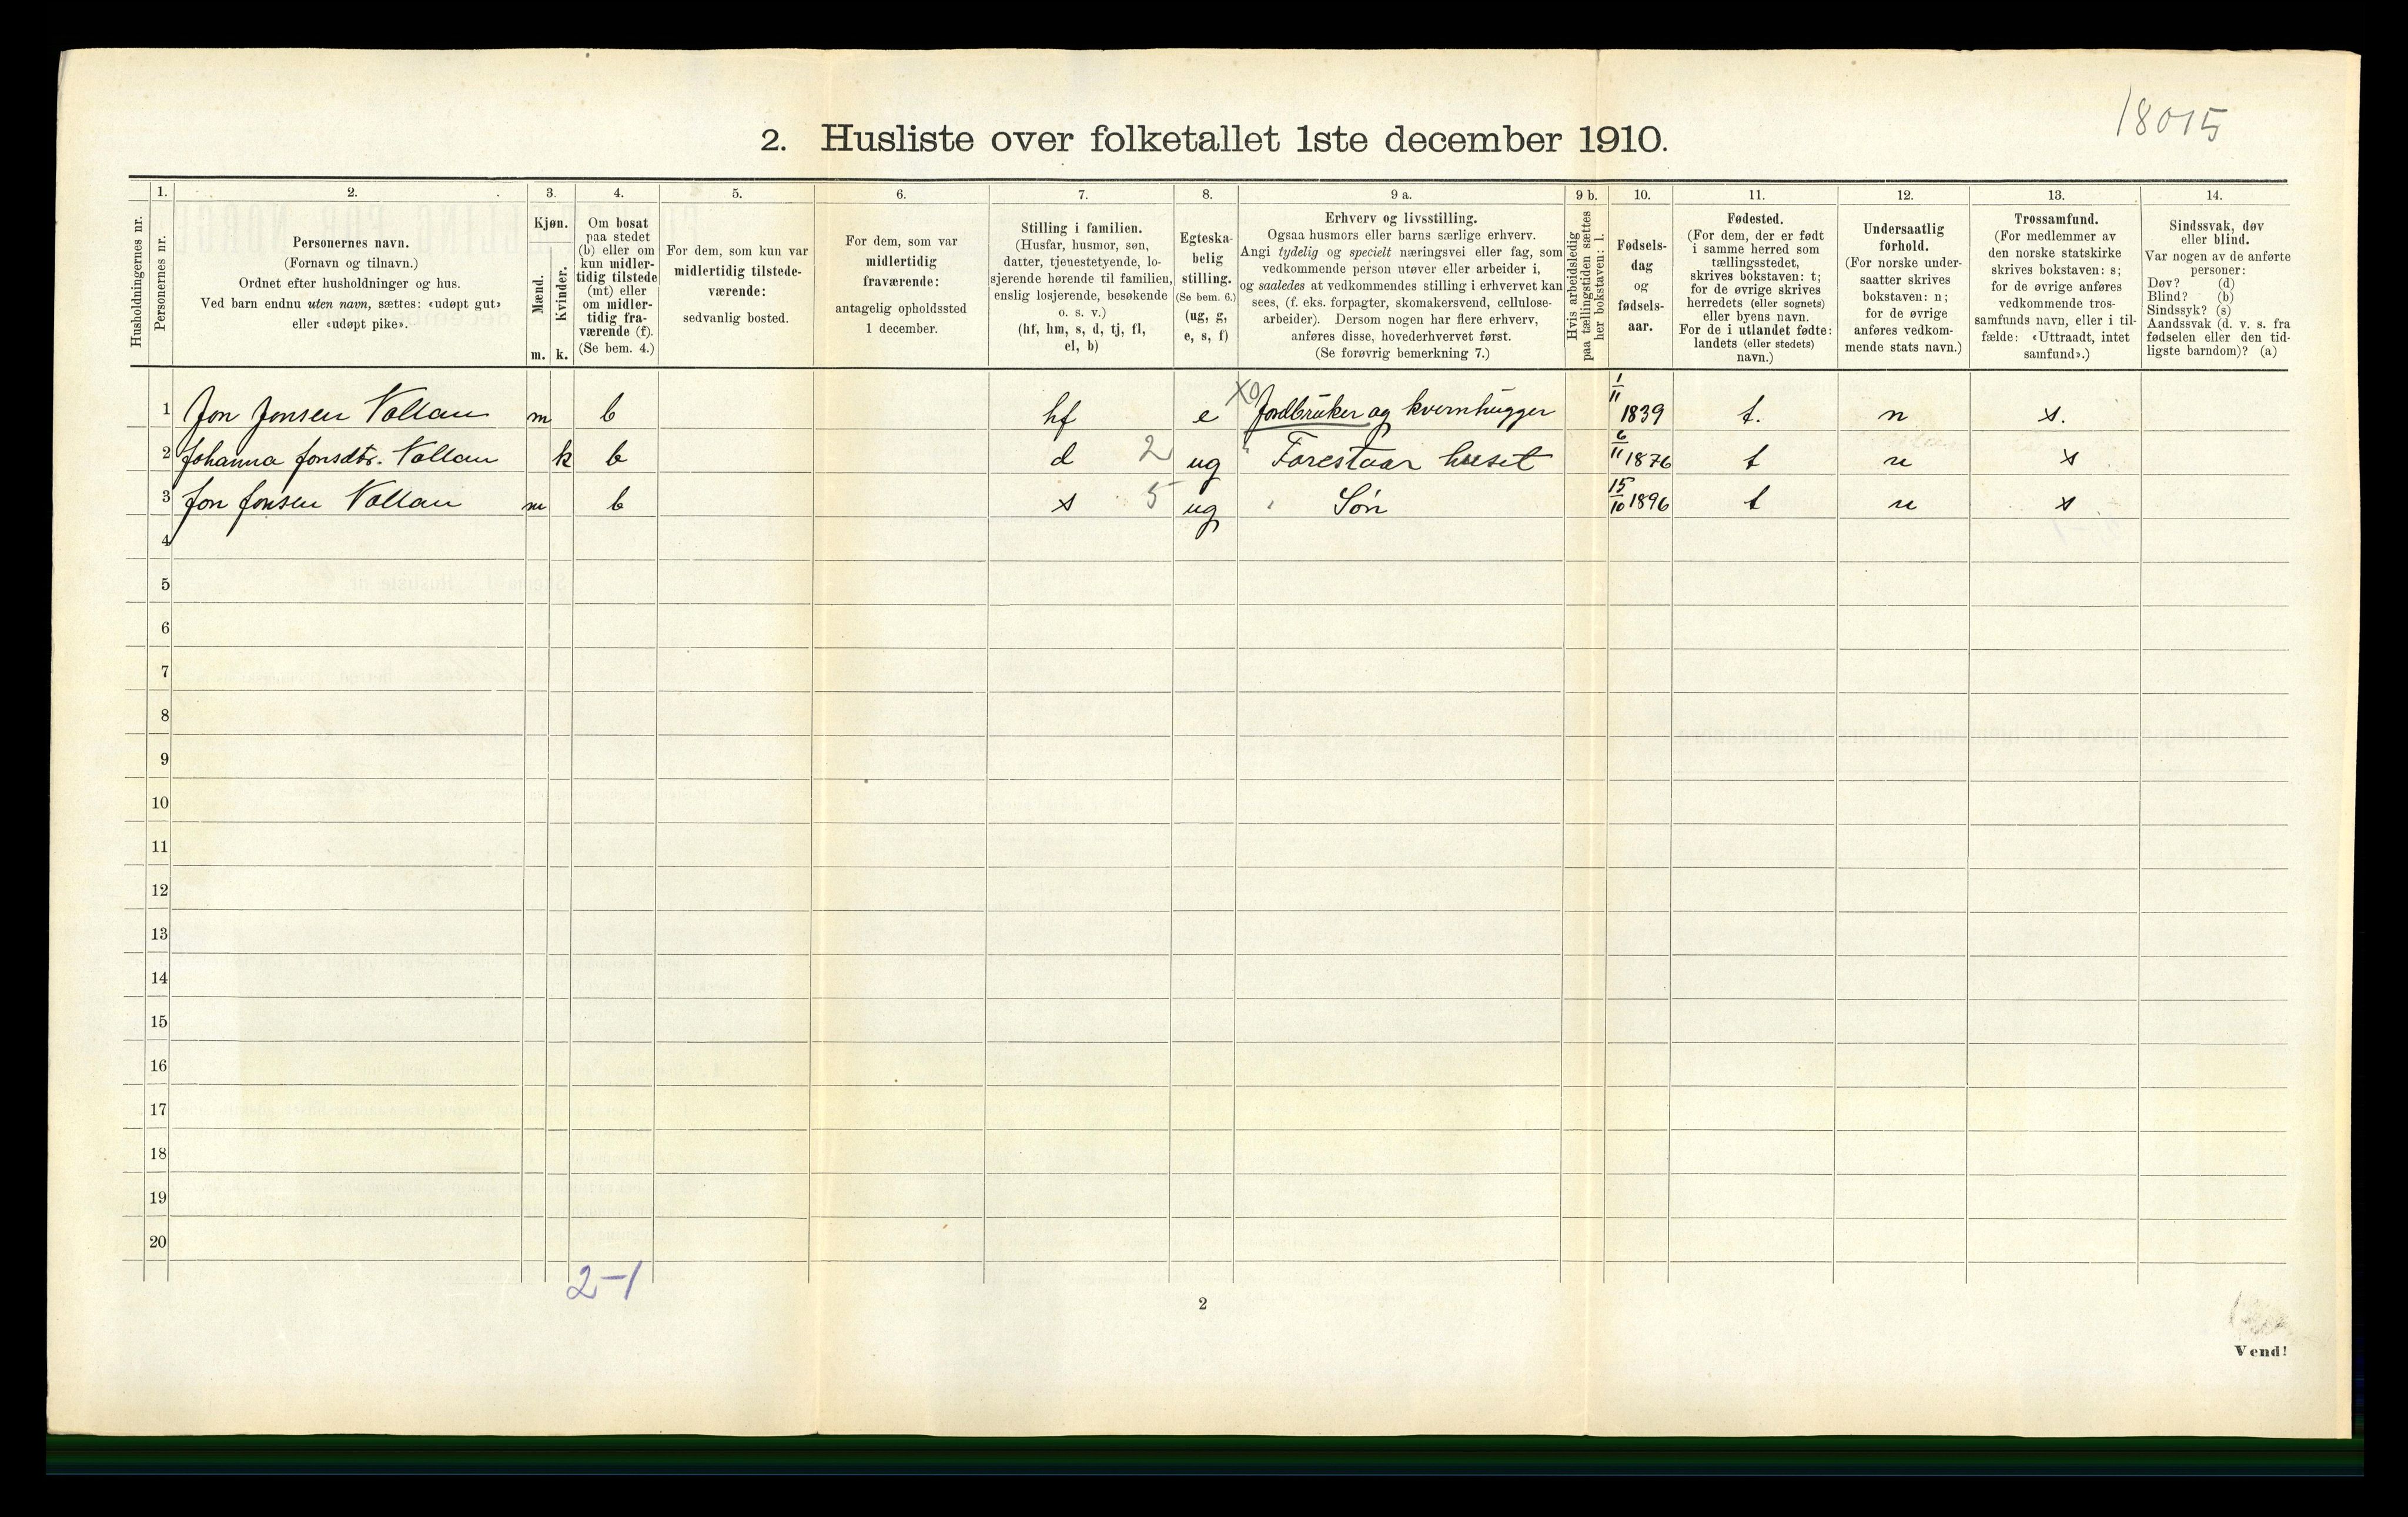 18015
2. Husliste over folketallet 1ste december 1910.
Husholdningernes nr.
1.
Personernes nr.
2.
Personernes navn.
(Fornavn og tilnavn.)
Ordnet efter husholdninger og hus.
Ved barn endnu uten navn, sættes: «udøpt gut»
eller «udøpt pike».
3.
Kjøn.
Mænd.
Kvinder.
m. k.
4.
Om bosat
paa stedet
(b) eller om
kun midler-
tidig tilstede
(mt) eller
om midler-
tidig fra-
værende (f).
(Se bem. 4.)
5.
For dem, som kun var
midlertidig tilstede-
værende:
sedvanlig bosted.
6.
For dem, som var
midlertidig
fraværende:
antagelig opholdssted
1 december.
7.
Stilling i familien.
(Husfar, husmor, søn,
datter, tjenestetyende, lo-
sjerende hørende til familien,
enslig losjerende, besøkende
o. s. v.)
(hf, hm, s, d, tj, fl,
el, b)
8.
Egteska-
belig
stilling.
(Se bem. 6.)
(ug, g,
e, s, f)
9 a.
Erhverv og livsstilling.
Ogsaa husmors eller barns særlige erhverv.
Angi tydelig og specielt næringsvei eller fag, som
vedkommende person utøver eller arbeider i,
og saaledes at vedkommendes stilling i erhvervet kan
sees, (f. eks. forpagter, skomakersvend, cellulose-
arbeider). Dersom nogen har flere erhverv,
anføres disse, hovederhvervet først.
(Se forøvrig bemerkning 7.)
9 b.
Hvis arbeidsledig
paa tællingstiden sættes
her bokstaven: l.
10.
Fødsels-
dag
og
fødsels-
aar.
11.
Fødested.
(For dem, der er født
i samme herred som
tællingsstedet,
skrives bokstaven: t;
for de øvrige skrives
herredets (eller sognets)
eller byens navn.
For de i utlandet fødte:
landets (eller stedets)
navn.)
12.
Undersaatlig
forhold.
(For norske under-
saatter skrives
bokstaven: n;
for de øvrige
anføres vedkom-
mende stats navn.)
13.
Trossamfund.
(For medlemmer av
den norske statskirke
skrives bokstaven: s;
for de øvrige anføres
vedkommende tros-
samfunds navn, eller i til-
fælde: «Uttraadt, intet
samfund».)
14.
Sindssvak, døv
eller blind.
Var nogen av de anførte
personer:
Døv? (d)
Blind? (b)
Sindssyk? (s)
Aandssvak (d. v. s. fra
fødselen eller den tid-
ligste barndom)? (a)
1 Jon Jonsen Vollan m b hf e X0 Jordbruker og kvernhugger 1/11 1839 t. n s.
2 Johanna Jonsdtr. Vollan k b d 2 ug " Forestaar huset 6/11 1876 t n s
3 Jon Jonsen Vollan m b s 5 ug Søn 15/10 1896 t n s
4
5
6
7
8
9
10
11
12
13
14
15
16
17
18
19
20
2-1
2
Vend!